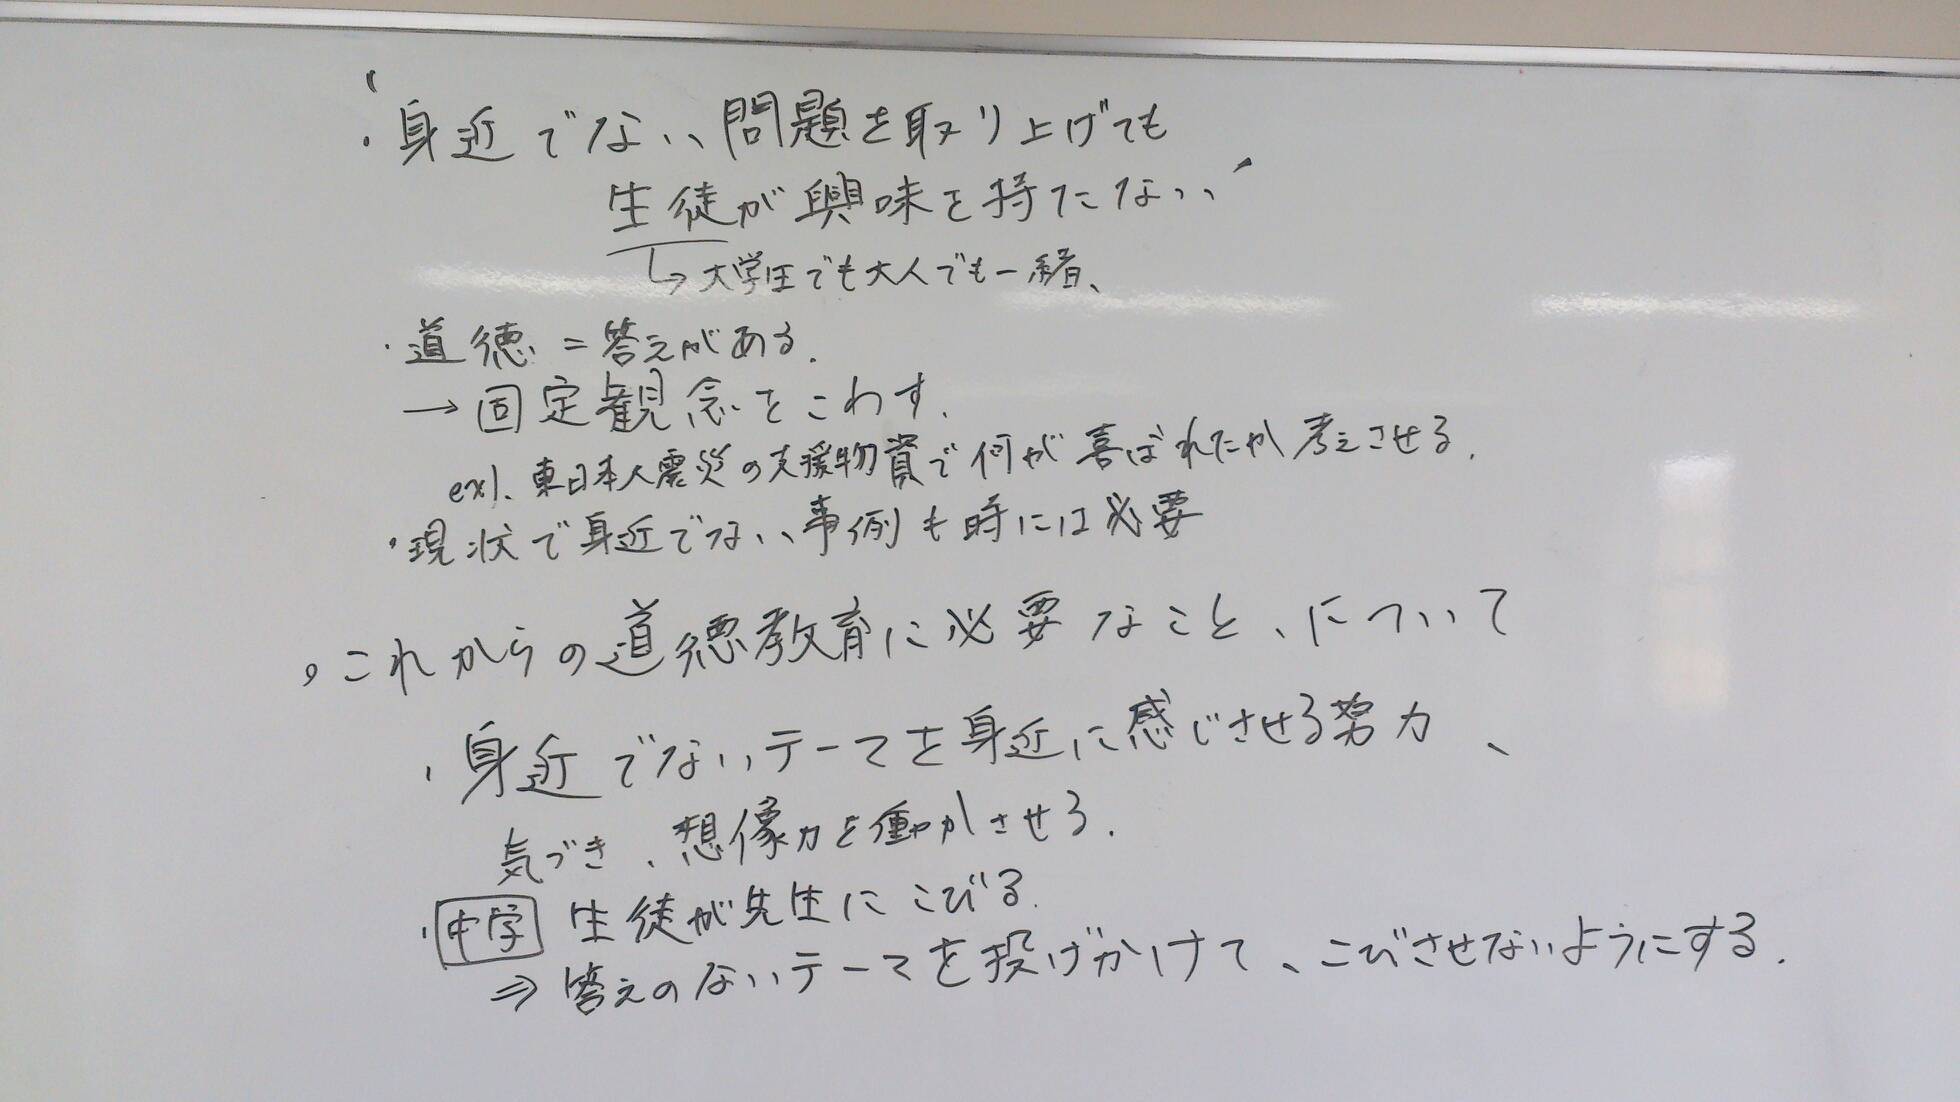 ・身近でない問題を取り上げても
生徒が興味を持たない
↳大学生でも大人でも一緒、
・道徳=答えがある.
→固定観念をこわす.
ex). 東日本大震災の支援物資で何が喜ばれたか考えさせる.
・現状で身近でない事例も時には必要
。これからの道徳教育に必要なこと、について
・身近でないテーマを身近に感じさせる努力、
気づき、想像力を働かさせる.
・中学 生徒が先生にこびる.
⇒答えのないテーマを投げかけて、こびさせないようにする.